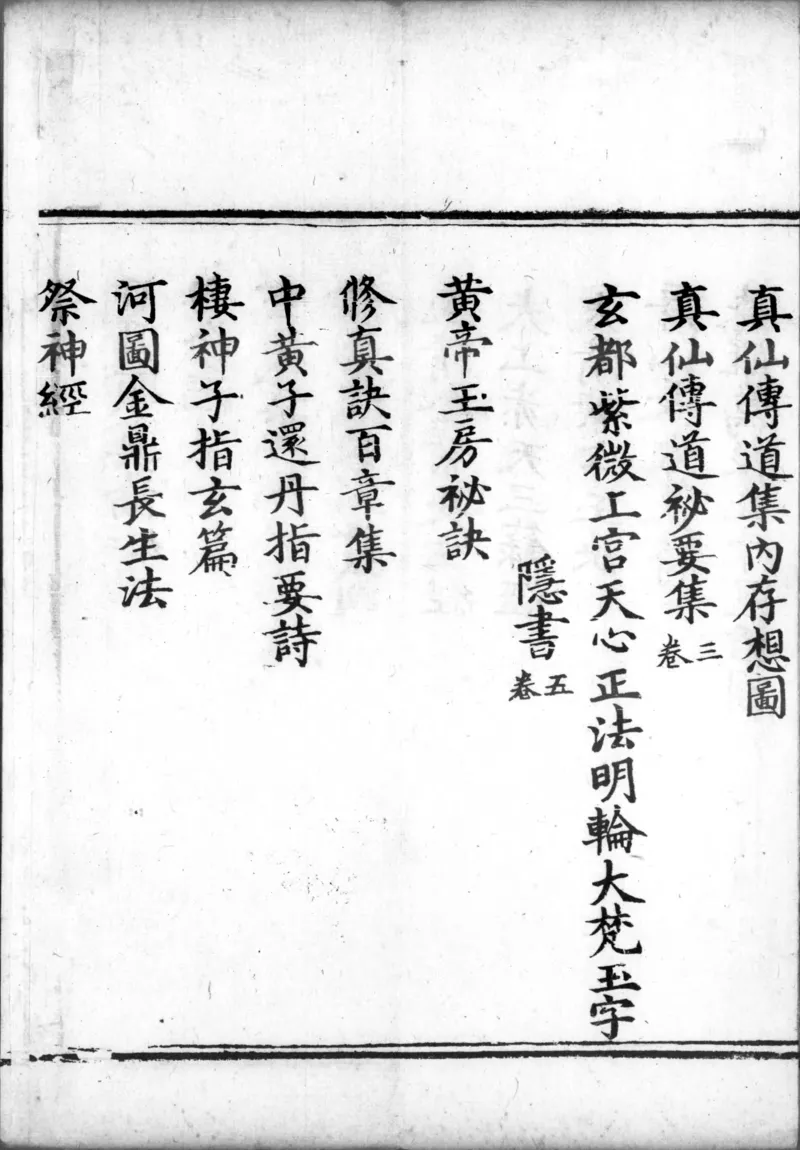 真仙傳道集內存想圖
真仙傳道祕要集三卷
玄都紫微上宮天心正法明輪大梵玉字
隱書五卷
黃帝玉房祕訣
修真訣百章集
中黃子還丹指要詩
棲神子指玄篇
河圖金鼎長生法
祭神經